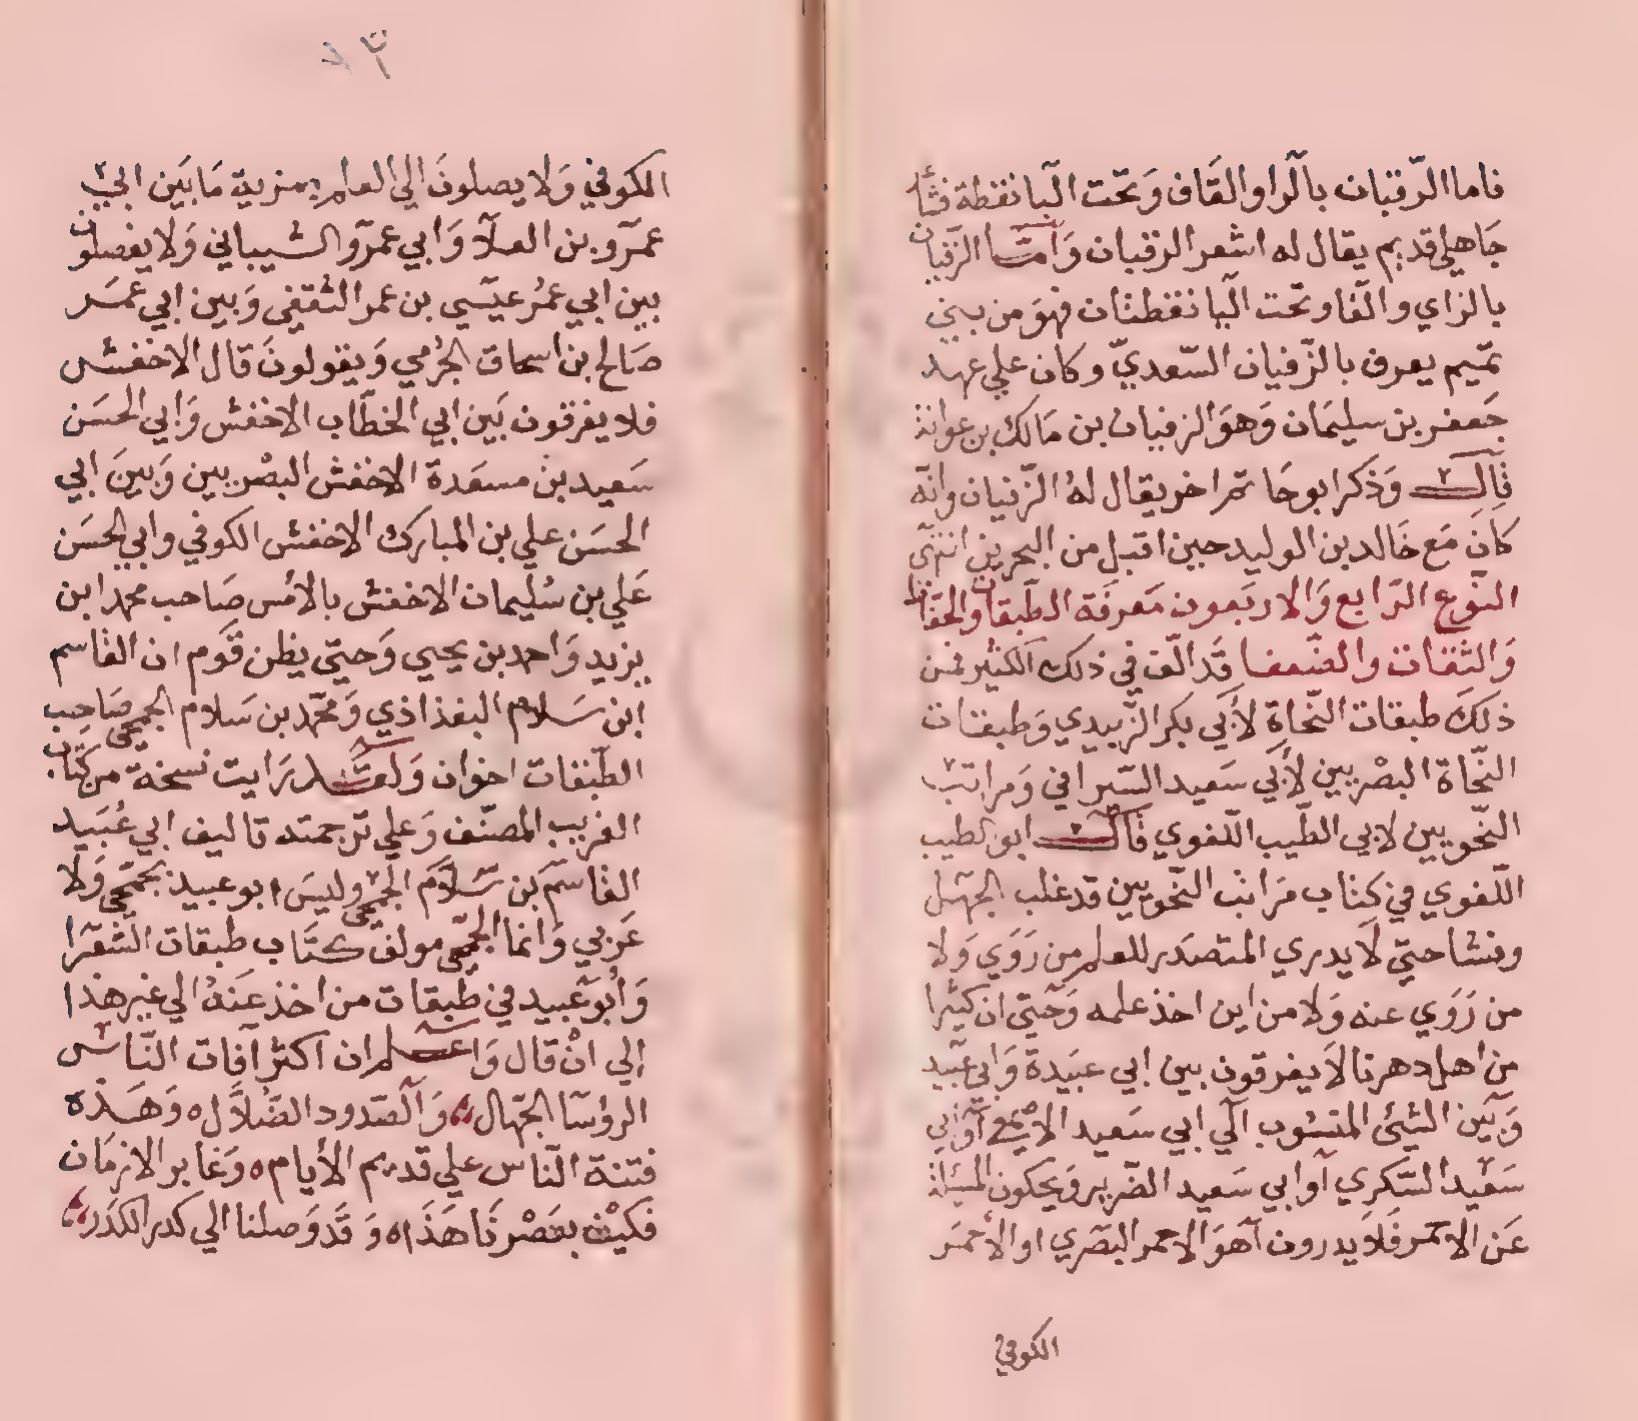 فاما الرقبان بالرا والقاف وتحت البا نقطة فشاعر
جاهلي قديم يقال له اشعر الرقبان واما الزفيان
بالزاي والفا وتحت اليا نقطتان فهو من بني
تميم يعرف بالزفيان السعدي وكان علي عهد
جعفر بن سليمان وهو الزفيان بن مالك بن عوانة
قال وذكر ابو حاتم اخر يقال له الزفيان وانه
كان مع خالد بن الوليد حين اقبل من البحرين انتهى
النوع الرابع والاربعون معرفة الطبقات والحفاظ
والثقات والضعفا قد الف في ذلك الكثير فمن
ذلك طبقات النحاة لأبي بكر الزبيدي وطبقات
النحاة البصريين لأبي سعيد السيرافي ومراتب
النحويين لابي الطيب اللغوي قال ابو الطيب
اللغوي في كتاب مراتب النحويين قد غلب الجهل
وفشا حتي لا يدري المتصدر للعلم من روي ولا
من روي عنه ولا من اين اخذ علمه وحتي ان كثيرا
من اهل دهرنا لا يفرقون بين ابي عبيدة وابي عبيد
وبين الشيئ المنسوب الي ابي سعيد الاصمعي او ابي
سعيد السكري او ابي سعيد الضرير ويحكون المسئلة
عن الاحمر فلا يدرون اهو الاحمر البصري او الأحمر
الكوفي
٧٣
الكوفي ولا يصلون الي العلم بمزية ما بين ابي
عمرو بن العلا وابي عمرو الشيباني ولا يفصلون
بين ابي عمر عيسي بن عمر الثقفي وبين ابي عمر
صالح بن اسحاق الجرمي ويقولون قال الاخفش
فلا يفرقون بين ابي الخطاب الاخفش وابي الحسن
سعيد بن مسعدة الاخفش البصريين وبين ابي
الحسن علي بن المبارك الاخفش الكوفي وابي الحسن
علي بن سليمان الاخفش بالامس صاحب محمد ابن
يزيد واحمد بن يحيي وحتي يظن قوم ان القاسم
ابن سلام البغداذي ومحمد بن سلام الجمحي صاحب
الطبقات اخوان ولقد رايت نسخة من كتاب
الغريب المصنف وعلي ترجمته تاليف ابي عبيد
القاسم بن سلام الجمحي وليس ابو عبيد بجمحي ولا
عربي وانما الجمحي مولف كتاب طبقات الشعرا
وأبو عبيد في طبقات من اخذ عنه الي غير هذا
إلي ان قال واعلم ان اكثر آفات الناس
الرؤسا الجهال والصدور الضلال ه وهذه
فتنة الناس علي قديم الأيام ه وغابر الازمان
فكيف بعصرنا هذا ه وقد وصلنا الي كدر الكدر